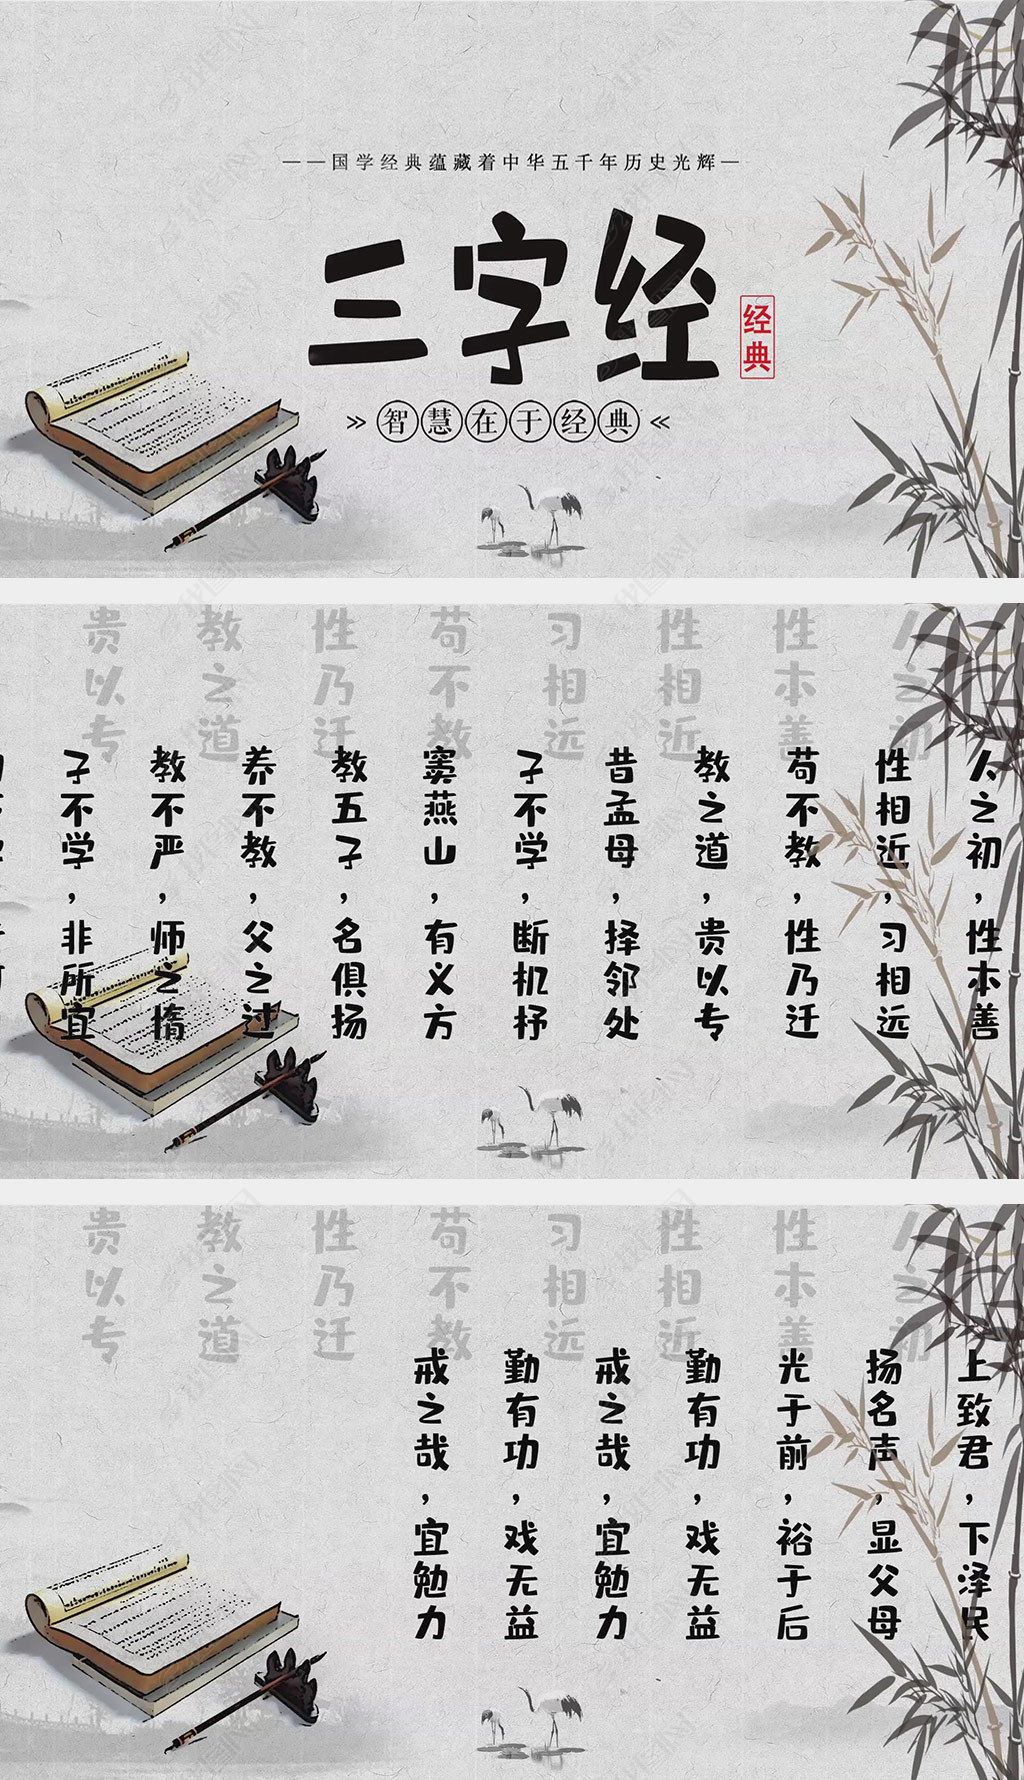 ——国学经典蕴藏着中华五千年历史光辉—
三字经
经典
»智慧在于经典«
人之初
性本善
性相近
习相远
苟不教
性乃迁
教之道
贵以专
人之初，性本善
性相近，习相远
苟不教，性乃迁
教之道，贵以专
昔孟母，择邻处
子不学，断机杼
窦燕山，有义方
教五子，名俱扬
养不教，父之过
教不严，师之惰
子不学，非所宜
人之初
性本善
性相近
习相远
苟不教
性乃迁
教之道
贵以专
上致君，下泽民
扬名声，显父母
光于前，裕于后
勤有功，戏无益
戒之哉，宜勉力
勤有功，戏无益
戒之哉，宜勉力